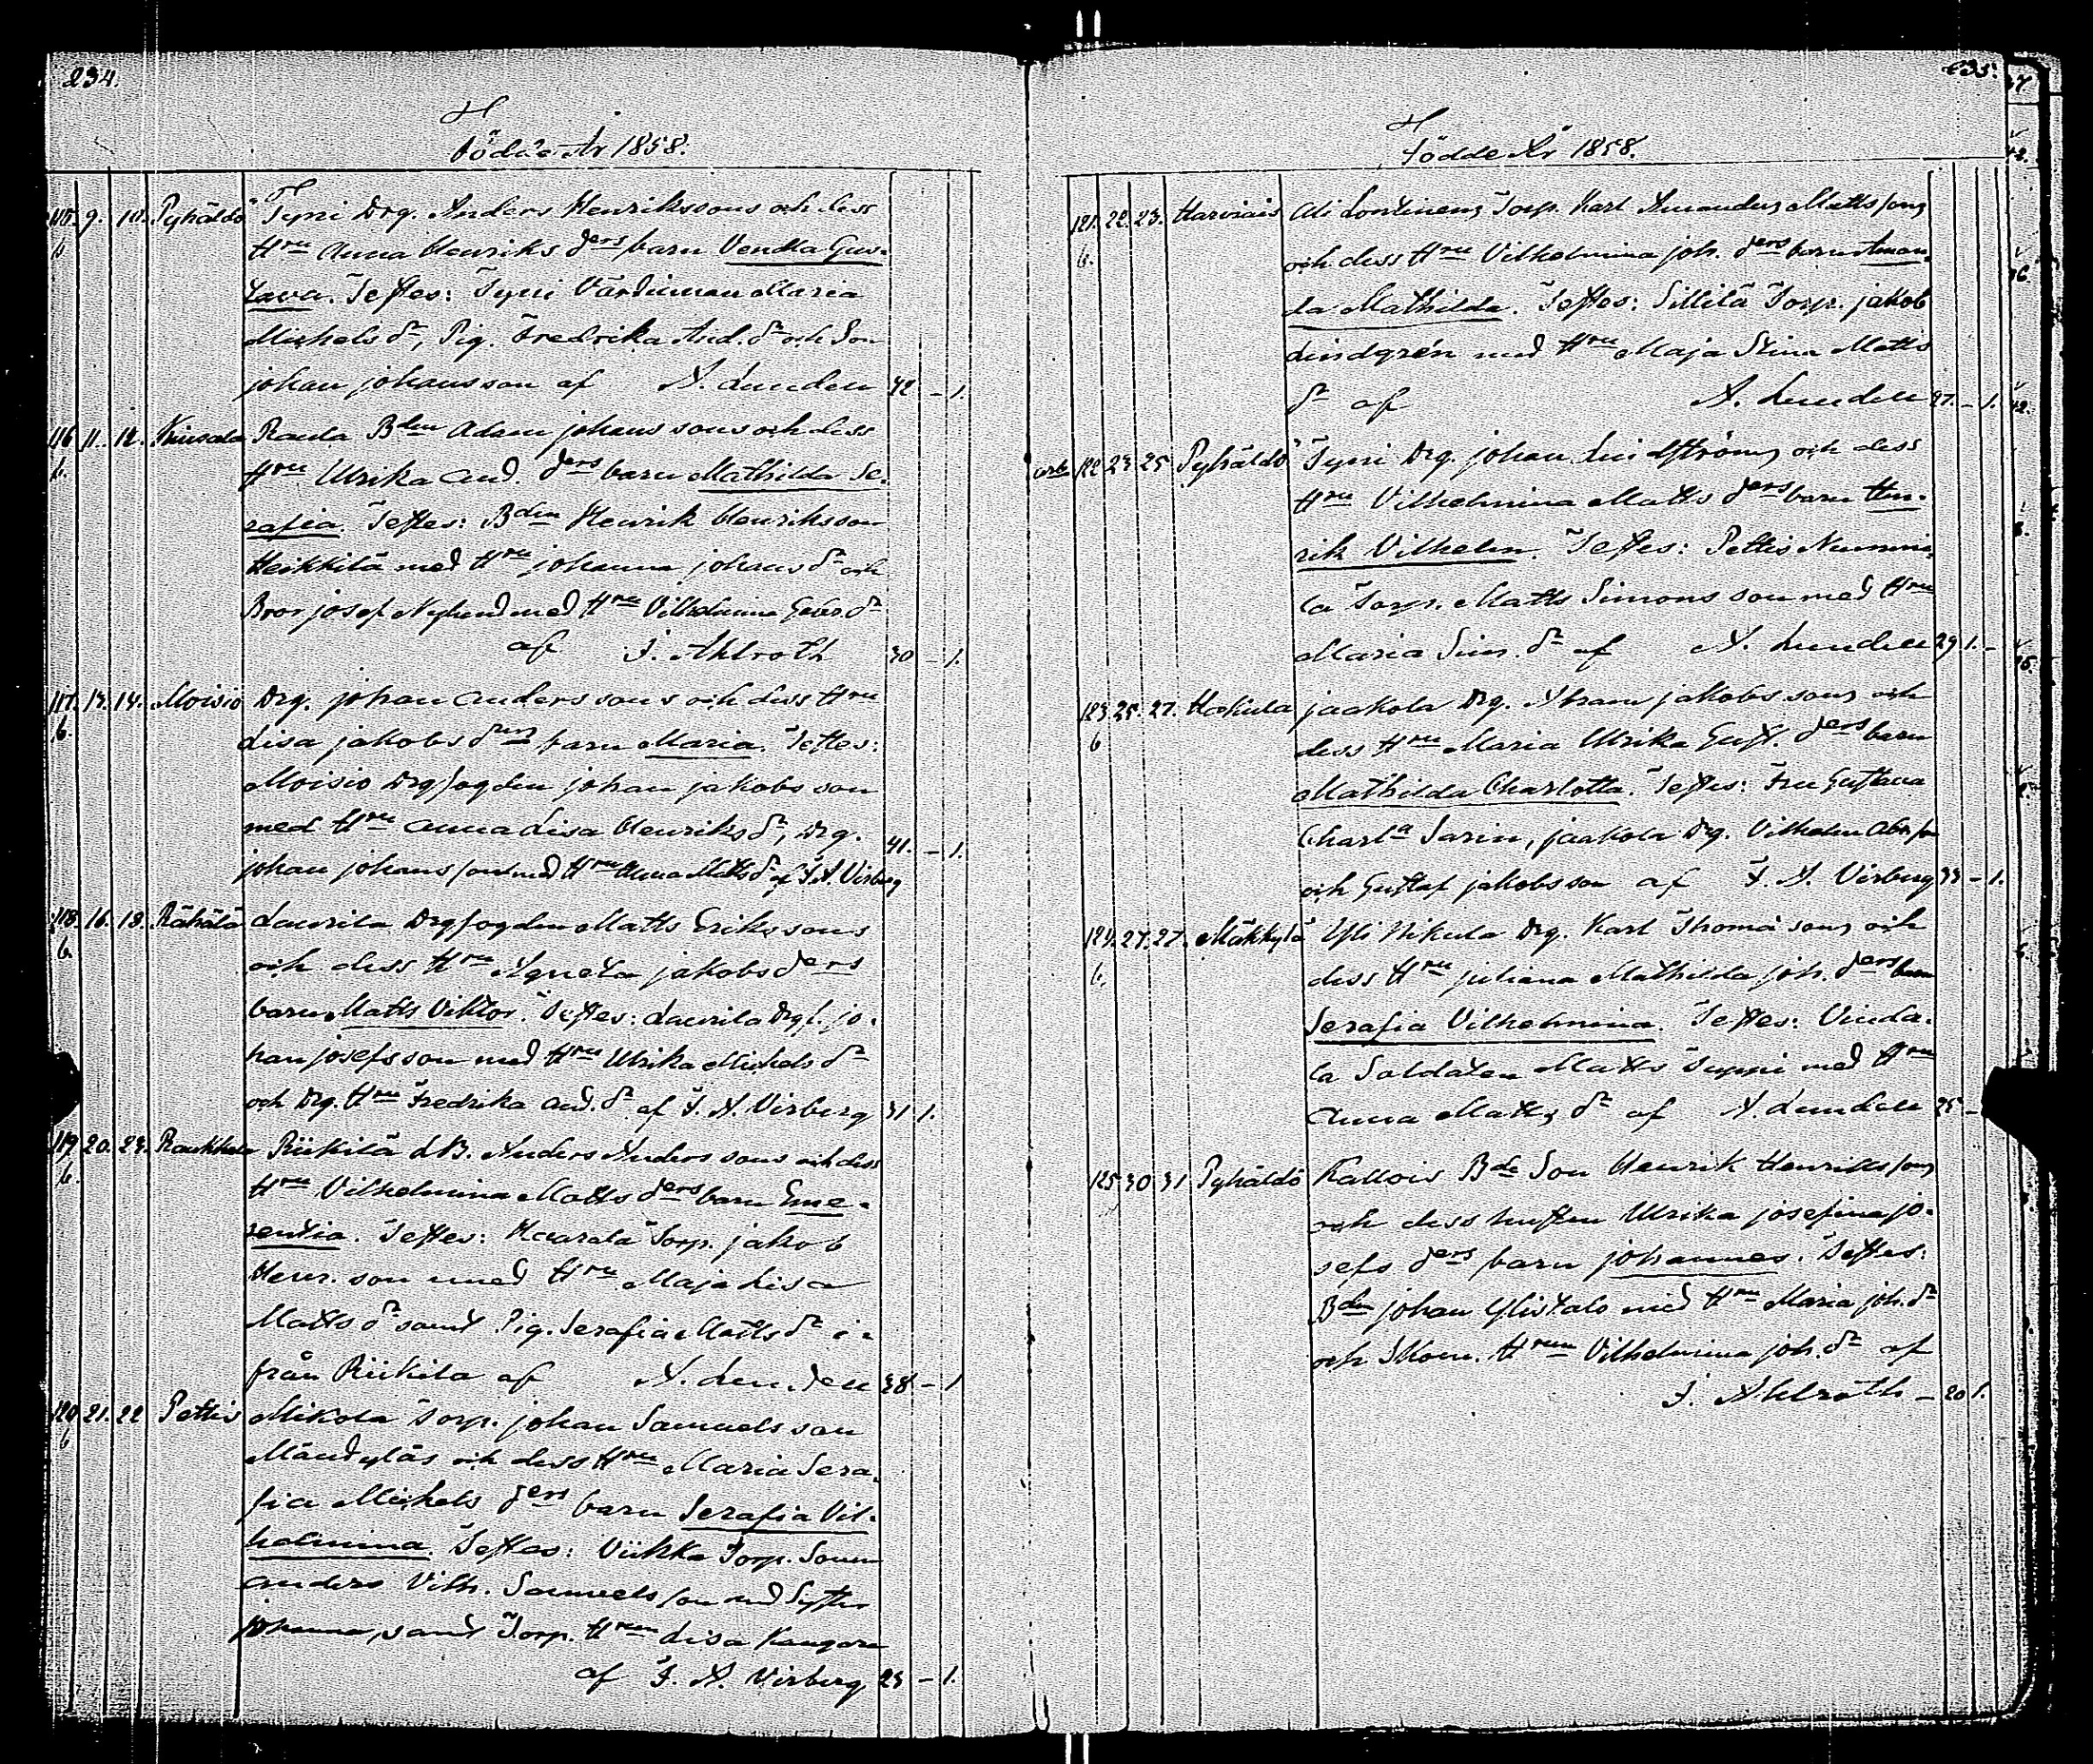 234.
Födde År 1858.
115. 9. 10. Pyhältö Tyni Drg. Anders Henrikssons och dess
b Hru Anna Henriks ders barn Vendla Gus-
tava. Testes: Tyni Värdinnan Maria
Michels dr, Pig. Fredrika And. dr och Son
Johan Johansson af A. Lunden 42 - 1.
116 11. 12. Raula Bden Adam Johans sons och dess
b. Hru Ulrika And. ders barn Mathilda Se-
rafia. Testes: Bden Henrik Henriksson
Heikkilä med Hru Johanna Johans dr och
Bror Josef Nylund med Hru Vilhelmina Gabr. dr
af F. Ahlroth 30 - 1.
117. 13. 14. Moisio Drg. Johan Anders sons och dess Hru
b. Lisa Jakobs ders barn Maria. Testes:
Moisio Drgfogden Johan Jakobs son
med Hru Anna Lisa Henriks dr, Drg. 41. - 1.
Johan Johans son med Hru Anna Matts dr af F. A. Virberg
118. 16. 18. Rähälä Laurila Drgfogden Matts Eriks sons
b. och dess Hru Agneta Jakobs ders
barn Matts Viktor. Testes: Laurila Drgf. Jo-
han Josefs son med Hru Ulrika Michels dr
och Drg. Hru Fredrika And. dr af F. A. Virberg 31 1.
119 20. 24. Raukkala Riikilä LB. Anders Anders sons och dess
b. Hru Vilhelmina Matts ders barn Eme-
rentia. Testes: Torp. Jakob
Henr. son med Hru Maja Lisa
Matts dr samt Pig. Serafia Matts dr i-
från Riikilä af A. Lunden 38 - 1
120 21. 22 Pettis Mikola Torp. Johan Samuels son
b Mändyläs och dess Hru Maria Sera-
fia Michels ders barn Serafia Vil-
helmina. Testes: Viikka Torp. Sonen
Anders Vilh. Samuels son med Syster
Johanna, samt Torp. Hrun Lisa
af F. A. Virberg 23 - 1.
235.
Födde År 1858.
121. 22. 23. Harviais Ali Lontinens Torp. Karl Amandus Matts sons
b. och dess Hru Vilhelmina Joh. ders barn Aman-
da Mathilda. Testes: Sillilä Torp. Jakob
Lindgrén med Hru Maja Stina Matts
dr af A. Lunden 27. - 1.
122 23 25 Pyhältö Tyni Drg. Johan Lindströms och dess
Hru Vilhelmina Matts ders barn Hen-
rik Vilhelm. Testes: Pettis Nummi-
la Torp. Matts Simons son med Hru
Maria Sim. dr af A. Lunden 29 1. -
123. 25. 27. Hakula Jaakola Drg. Abram Jakobs sons och
b dess Hru Maria Ulrika Gust. ders barn
Mathilda Charlotta. Testes: Fru Gustava
Charlta Sarin, Jaakola Drg. Vilhelm Abr. son
och Gustaf Jakobsson af F. A. Virberg 33 - 1.
124. 27. 27. Mäkkylä Yli Nikula Drg. Karl Thomä sons och
b. dess Hru Juliana Mathilda Joh. ders barn
Serafia Vilhelmina. Testes: Vinda-
la Soldaten Matts Tuppi med Hru
Anna Matts dr af A. Lunden 25 -
125 30 31 Pyhältö Kallois Bde Son Henrik Henriks sons
och dess hustru Ulrika Josefina Jo-
sefs ders barn Johannes. Testes:
Bden Johan Ylistalo med Hru Maria Joh. dr
och Skom. Hrun Vilhelmina Joh. dr af
F. Ahlroth - 20 1.